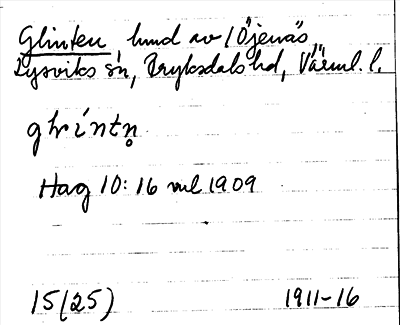 Glinten, hmd av /Öjenäs
Lysviks sn, Fryksdals hd, Värml. l.
glɩ́ntn̥
Hag 10: 16 vid 1909
15(25) 1911-16